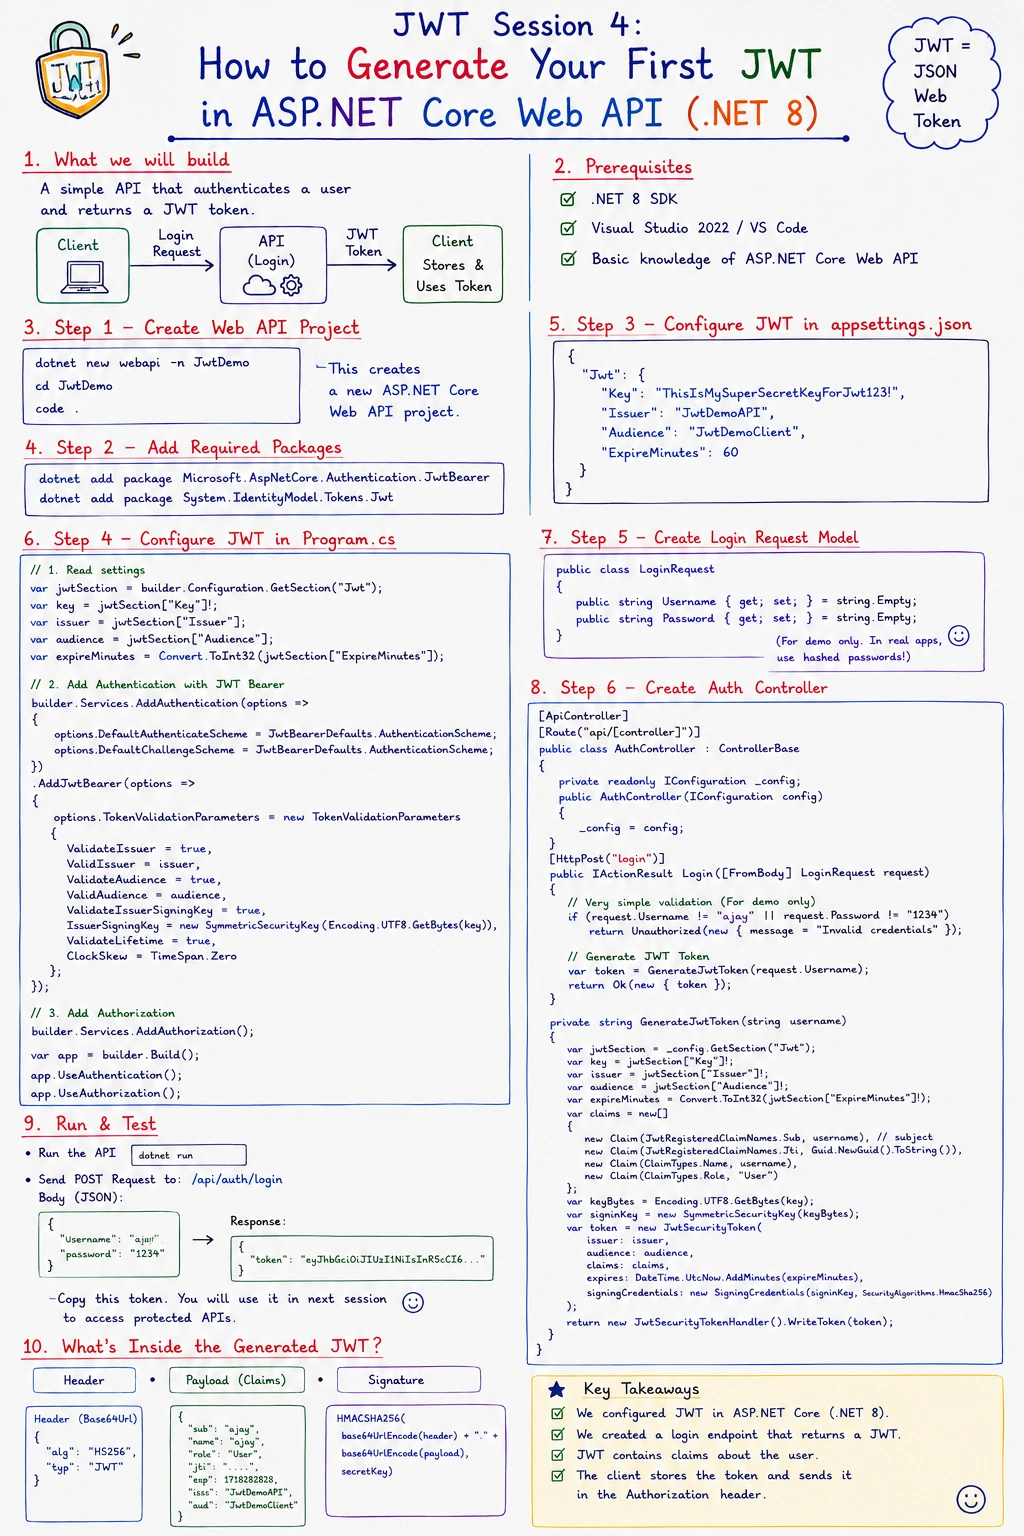 JWT
JWT Session 4:
How to Generate Your First JWT
in ASP.NET Core Web API (.NET 8)
JWT =
JSON
Web
Token
1. What we will build
A simple API that authenticates a user
and returns a JWT token.
Client
Login
Request
API
(Login)
JWT
Token
Client
Stores &
Uses Token
2. Prerequisites
.NET 8 SDK
Visual Studio 2022 / VS Code
Basic knowledge of ASP.NET Core Web API
3. Step 1 – Create Web API Project
dotnet new webapi -n JwtDemo
cd JwtDemo
code .
This creates
a new ASP.NET Core
Web API project.
4. Step 2 – Add Required Packages
dotnet add package Microsoft.AspNetCore.Authentication.JwtBearer
dotnet add package System.IdentityModel.Tokens.Jwt
5. Step 3 – Configure JWT in appsettings.json
{
"Jwt": {
"Key": "ThisIsMySuperSecretKeyForJwt123!",
"Issuer": "JwtDemoAPI",
"Audience": "JwtDemoClient",
"ExpireMinutes": 60
}
}
6. Step 4 – Configure JWT in Program.cs
// 1. Read settings
var jwtSection = builder.Configuration.GetSection("Jwt");
var key = jwtSection["Key"]!;
var issuer = jwtSection["Issuer"];
var audience = jwtSection["Audience"];
var expireMinutes = Convert.ToInt32(jwtSection["ExpireMinutes"]);
// 2. Add Authentication with JWT Bearer
builder.Services.AddAuthentication(options =>
{
options.DefaultAuthenticateScheme = JwtBearerDefaults.AuthenticationScheme;
options.DefaultChallengeScheme = JwtBearerDefaults.AuthenticationScheme;
})
.AddJwtBearer(options =>
{
options.TokenValidationParameters = new TokenValidationParameters
{
ValidateIssuer = true,
ValidIssuer = issuer,
ValidateAudience = true,
ValidAudience = audience,
ValidateIssuerSigningKey = true,
IssuerSigningKey = new SymmetricSecurityKey(Encoding.UTF8.GetBytes(key)),
ValidateLifetime = true,
ClockSkew = TimeSpan.Zero
};
});
// 3. Add Authorization
builder.Services.AddAuthorization();
var app = builder.Build();
app.UseAuthentication();
app.UseAuthorization();
7. Step 5 – Create Login Request Model
public class LoginRequest
{
public string Username { get; set; } = string.Empty;
public string Password { get; set; } = string.Empty;
}
(For demo only. In real apps,
use hashed passwords!)
8. Step 6 – Create Auth Controller
[ApiController]
[Route("api/[controller]")]
public class AuthController : ControllerBase
{
private readonly IConfiguration _config;
public AuthController(IConfiguration config)
{
_config = config;
}
[HttpPost("login")]
public IActionResult Login([FromBody] LoginRequest request)
{
// Very simple validation (For demo only)
if (request.Username != "ajay" || request.Password != "1234")
return Unauthorized(new { message = "Invalid credentials" });
// Generate JWT Token
var token = GenerateJwtToken(request.Username);
return Ok(new { token });
}
private string GenerateJwtToken(string username)
{
var jwtSection = _config.GetSection("Jwt");
var key = jwtSection["Key"]!;
var issuer = jwtSection["Issuer"]!;
var audience = jwtSection["Audience"]!;
var expireMinutes = Convert.ToInt32(jwtSection["ExpireMinutes"]!);
var claims = new[]
{
new Claim(JwtRegisteredClaimNames.Sub, username), // subject
new Claim(JwtRegisteredClaimNames.Jti, Guid.NewGuid().ToString()),
new Claim(ClaimTypes.Name, username),
new Claim(ClaimTypes.Role, "User")
};
var keyBytes = Encoding.UTF8.GetBytes(key);
var signinKey = new SymmetricSecurityKey(keyBytes);
var token = new JwtSecurityToken(
issuer: issuer,
audience: audience,
claims: claims,
expires: DateTime.UtcNow.AddMinutes(expireMinutes),
signingCredentials: new SigningCredentials(signinKey, SecurityAlgorithms.HmacSha256)
);
return new JwtSecurityTokenHandler().WriteToken(token);
}
}
9. Run & Test
• Run the API dotnet run
• Send POST Request to: /api/auth/login
Body (JSON):
{
"Username": "ajay"
"password": "1234"
}
Response:
{
"token": "eyJhbGciOiJIUzI1NiIsInR5cCI6..."
}
–Copy this token. You will use it in next session
to access protected APIs.
10. What's Inside the Generated JWT?
Header • Payload (Claims) • Signature
Header (Base64Url)
{
"alg": "HS256",
"typ": "JWT"
}
{
"sub": "ajay",
"name": "ajay",
"role": "User",
"jti": "....",
"exp": 1718282828,
"isss": "JwtDemoAPI",
"aud": "JwtDemoClient"
}
HMACSHA256(
base64UrlEncode(header) + "." +
base64UrlEncode(payload),
secretKey)
Key Takeaways
We configured JWT in ASP.NET Core (.NET 8).
We created a login endpoint that returns a JWT.
JWT contains claims about the user.
The client stores the token and sends it
in the Authorization header.